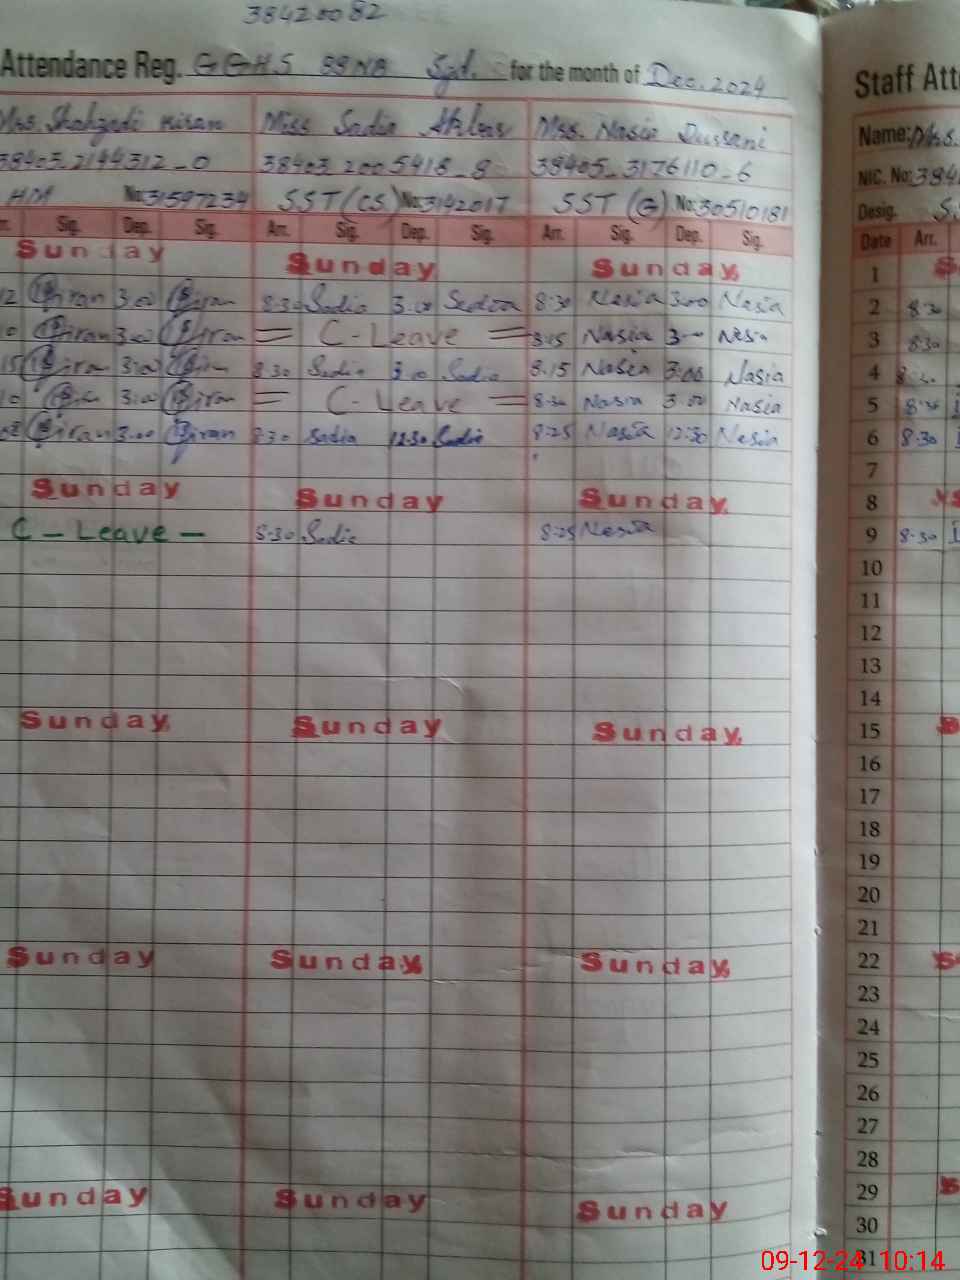 38420082
Attendance Reg. GGHS 89 NB Sgd. for the month of Dec. 2024
Staff Att
Mrs. Shahzadi Kiran Miss Sadia Mrs. Nasia Durrani
Name: Mrs.
38403-2144312-0 38403-2005418-8 38405-3176110-6
NIC. No: 384
HM No: 31597234 SST (CS) No: 3142017 SST (G) No: 30510181
Desig. S
Sig. Dep. Sig. Arr. Sig. Dep. Sig. Arr. Sig. Dep. Sig.
Date Arr.
Sunday Sunday Sunday
1
Kiran 3.00 Kiran 8:30 Sadia 3.00 Sadia 8:30 Nasia 3:00 Nasia
2 8:30
Kiran 3:00 Kiran = C-Leave = 8:15 Nasia 3:00 Nasia
3 8:30
15 Kiran 3:00 Kiran 8:30 Sadia 3:0 Sadia 8.15 Nasia 3:00 Nasia
4 8:30
10 Kiran 3:00 Kiran = C-Leave = 8:30 Nasia 3:00 Nasia
5 8:30
Kiran 3:00 Kiran 8:30 Sadia 12:30 Sadia 8:25 Nasia 12:30 Nasia
6 8:30
7
Sunday Sunday Sunday
8
C-Leave - 8:30 Sadia 8:25 Nasia
9 8:30
10
11
12
13
14
Sunday Sunday Sunday
15
16
17
18
19
20
21
Sunday Sunday Sunday
22
23
24
25
26
27
28
Sunday Sunday Sunday
29
30
31
09-12-24 10:14